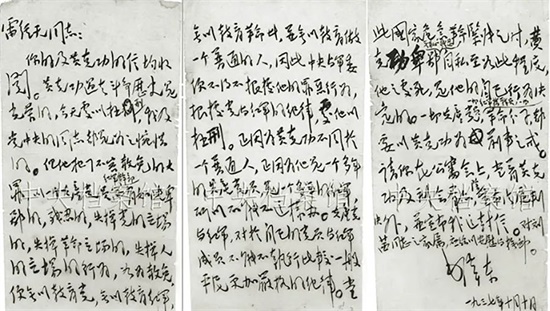 雷经天同志:
你的及黄克功的信均收
阅。黄克功过去斗争历史是
光荣的,今天处以极刑,我及
党中央的同志都是为之惋惜
的。但他犯了不容赦免的大
罪,以一个共产党员红军干
部而有如此卑鄙
的,残忍的,失掉党的立场
的,失掉革命立场的,失掉人
的立场的行为,如为赦免,
便无以教育党,无以教育红军,
无以教育革命者,并无以教育做
一个普通的人,因此中央与军委
便不得不根据他的罪恶行为,
根据党与红军的纪律,处他以
极刑。正因为黄克功不同于
一个普通人,正因为他是一个多年
的共产党员,是一个多年的红军,
所以不能不这样办。共产党
与红军,对于自己的党员与红军
成员不能不执行比较一般
平民更加严格的纪律。当
此国家危急革命紧张之时,黄
克功卑鄙无耻残忍自私至如此程度,
他之处死,是他的自己行为决
定的。一切共产党员,一切红军指战员,一切革命分子,都
要以黄克功为前车之戒。
请你在公审会上,当着黄克
功及到会群众,除宣布法庭判
决外,并宣布我这封信。对刘
茜同志之家属,应给以安慰与抚恤。
毛泽东
一九三七年十月十日